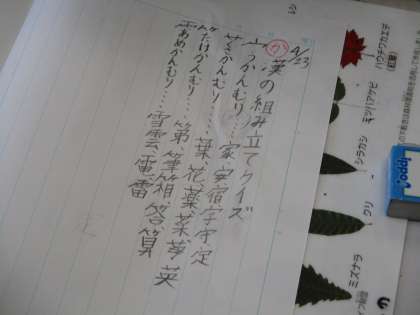 4/23
か 漢の組み立てクイズ
宀うかんむり……家 安 宿 字 守 定
かんむり……葉、花、薬、菜、芽、英
たけかんむり……第、筆、箱、答、算
あめかんむり……雪 雲 電 雷
ハウチワカエデ
(紅葉)
ミツバアケビ
シラカシ
クリ
ミズナラ